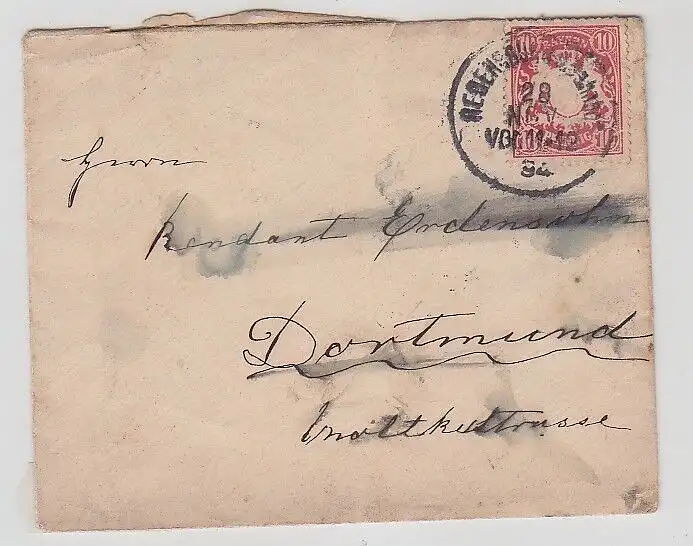 10 10
REGENSBURG
28
NOV
VOR 11-12
94
Herrn
Rendant Erdensohn
Dortmund
Moltkestrasse